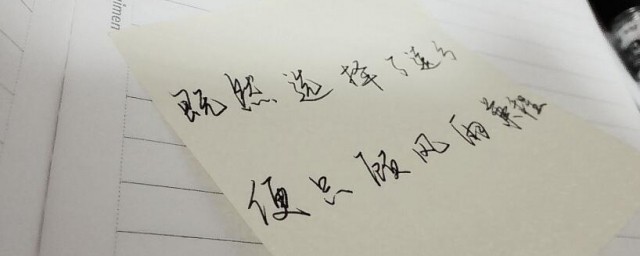 imen
既然选择了远方
便只顾风雨兼程